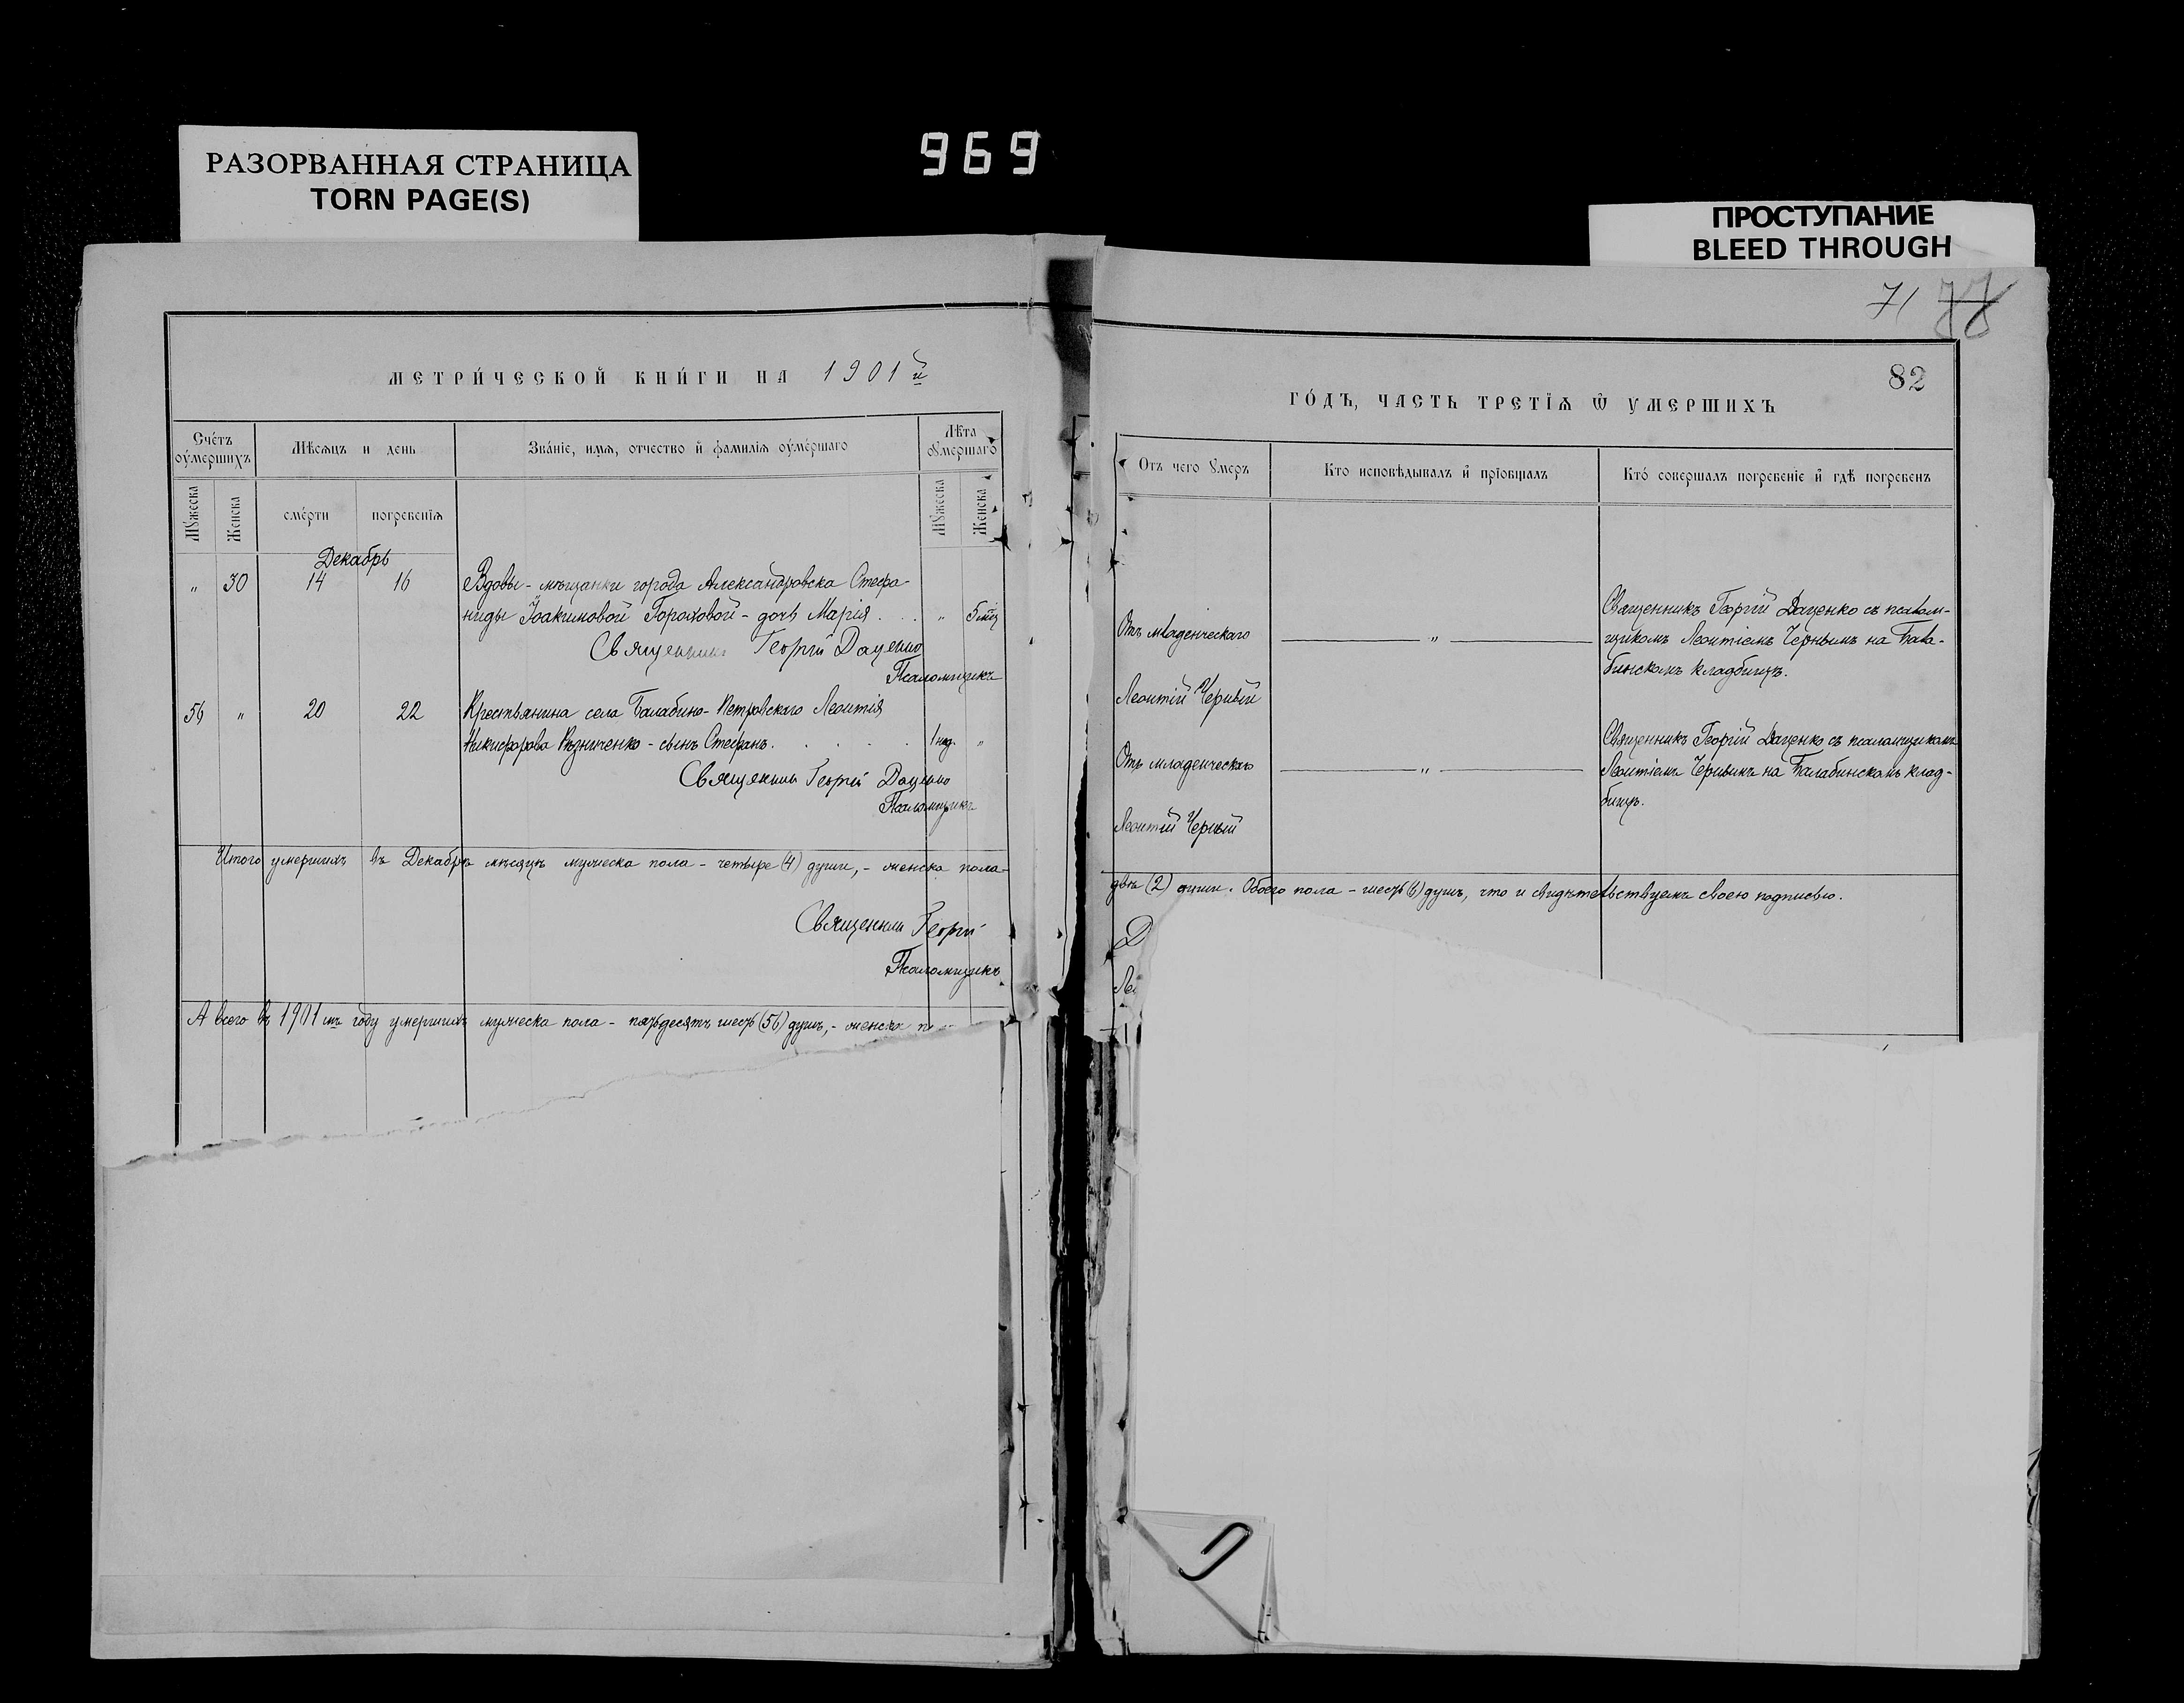 969
РАЗОРВАННАЯ СТРАНИЦА
TORN PAGE(S)
ПРОСТУПАНИЕ
BLEED THROUGH
МЕТРИ́ЧЕСКОЙ КНИ́ГИ НА 1901 й
Сче́тъ оу҆ме́ршихъ
Мѣсяцъ и день
Зва́нїе, имя, отчество и҆ фамилїя оу҆ме́ршаго
Лѣта оумершаго
Мужеска
Женска
сме́рти
погребенїя
Мужеска
Женска
Декабрь
" 30 14 16 Вдовы - мѣщанки города Александровска Стефа-
ниды Іоакимовой Гороховой - дочь Марія . . . " 5 мѣс
Священникъ Георгій Даценко
Псаломщикъ
56 " 20 22 Крестьянина села Балабино-Петровскаго Леонтія
Никифорова Рѣзниченко - сынъ Стефанъ. . . . . 1 нед. "
Священникъ Георгій Даценко
Псаломщикъ
Итого умершихъ въ Декабрѣ мѣсяцѣ мужеска пола - четыре (4) души, - женска пола -
Священникъ Георгій
Псаломщикъ
А всего въ 1901 мъ году умершихъ мужеска пола - пятьдесятъ шесть (56) душъ, - женска
71
82
ГО́ДЪ, ЧАСТЬ ТРЕТЇЯ Ѡ УМЕРШИХЪ
Отъ чего умеръ
Кто исповѣдывалъ и҆ прїобщалъ
Кто́ совершалъ погребенїе и҆ гдѣ погребенъ
Отъ младенческаго "
Священникъ Георгій Даценко съ псалом-
щикомъ Леонтіемъ Чернымъ на Бала-
бинскомъ кладбищѣ.
Леонтій Черный
Отъ младенческаго "
Священникъ Георгій Даценко съ псаломщикомъ
Леонтіемъ Чернымъ на Балабинскомъ клад-
бищѣ.
Леонтій Черный
двѣ (2) души. Обоего пола - шесть (6) душъ, что и свидѣтельствуемъ своею подписью.
Д
Ле